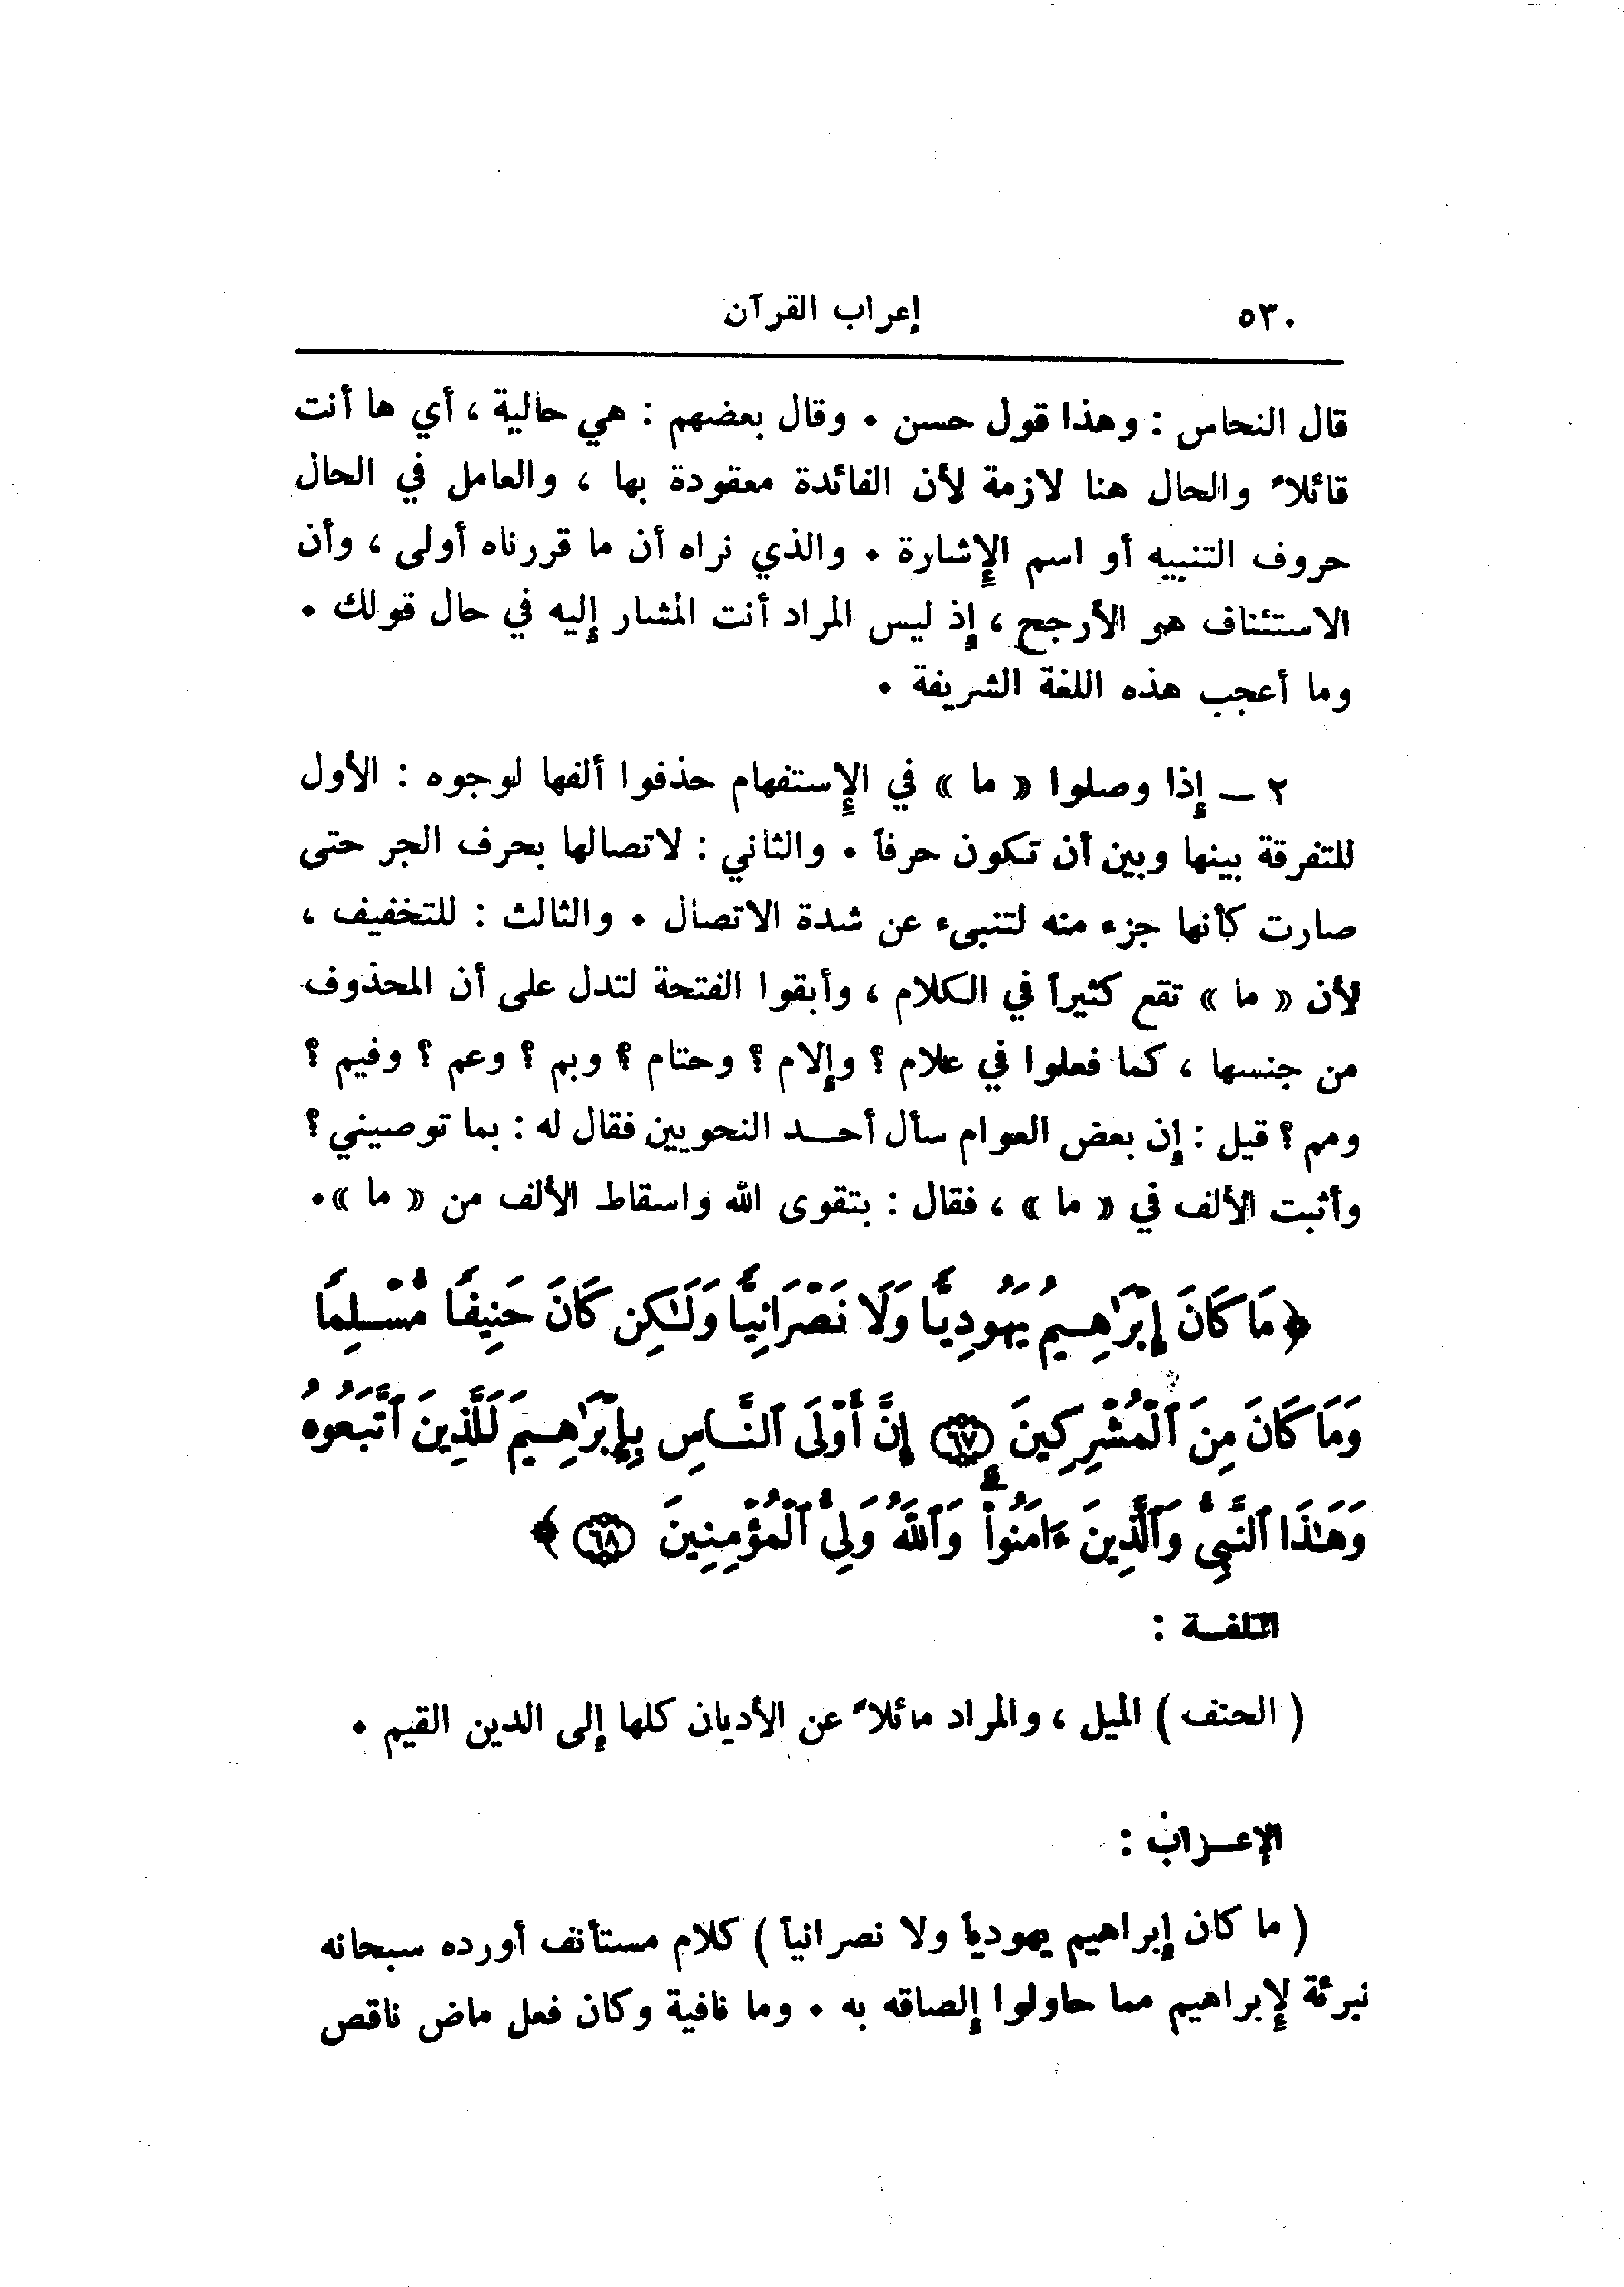 ٥٣٠ إعراب القرآن
قال النحاس : وهذا قول حسن • وقال بعضهم : هي حالية ، أي ها أنت
قائلاً والحال هنا لازمة لأن الفائدة معقودة بها ، والعامل في الحال
حروف التنبيه أو اسم الإشارة • والذي نراه أن ما قررناه أولى ، وأن
الاستئناف هو الأرجح ، إذ ليس المراد أنت المشار إليه في حال قولك •
وما أعجب هذه اللغة الشريفة •
٢ ـ إذا وصلوا « ما » في الإستفهام حذفوا ألفها لوجوه : الأول
للتفرقة بينها وبين أن تكون حرفاً • والثاني : لاتصالها بحرف الجر حتى
صارت كأنها جزء منه لتنبىء عن شدة الاتصال • والثالث : للتخفيف ،
لأن « ما » تقع كثيراً في الكلام ، وأبقوا الفتحة لتدل على أن المحذوف
من جنسها ، كما فعلوا في علام ؟ وإلام ؟ وحتام ؟ وبم ؟ وعم ؟ وفيم ؟
ومم ؟ قيل : إن بعض العوام سأل أحــد النحويين فقال له : بما توصيني ؟
وأثبت الألف في « ما » ، فقال : بتقوى الله واسقاط الألف من « ما »•
﴿ مَا كَانَ إِبْرَٰهِـيمُ يَهُودِيًّا وَلَا نَصْرَانِيًّا وَلَـٰكِن كَانَ حَنِيفًا مُّسْـلِمًا
وَمَا كَانَ مِنَ ٱلْمُشْرِكِينَ ٦٧ إِنَّ أَوْلَى ٱلنَّـاسِ بِإِبْرَٰهِـيمَ لَلَّذِينَ ٱتَّبَعُوهُ
وَهَـٰذَا ٱلنَّبِىُّ وَٱلَّذِينَ ءَامَنُوا۟ وَٱللَّهُ وَلِىُّ ٱلْمُؤْمِنِينَ ٦٨ ﴾
اللغــة :
( الحنف ) الميل ، والمراد مائلاً عن الأديان كلها إلى الدين القيم •
الإعــراب :
( ما كان إبراهيم يهودياً ولا نصرانياً ) كلام مستأنف أورده سبحانه
تبرئة لإبراهيم مما حاولوا إلصاقه به • وما نافية وكان فعل ماض ناقص